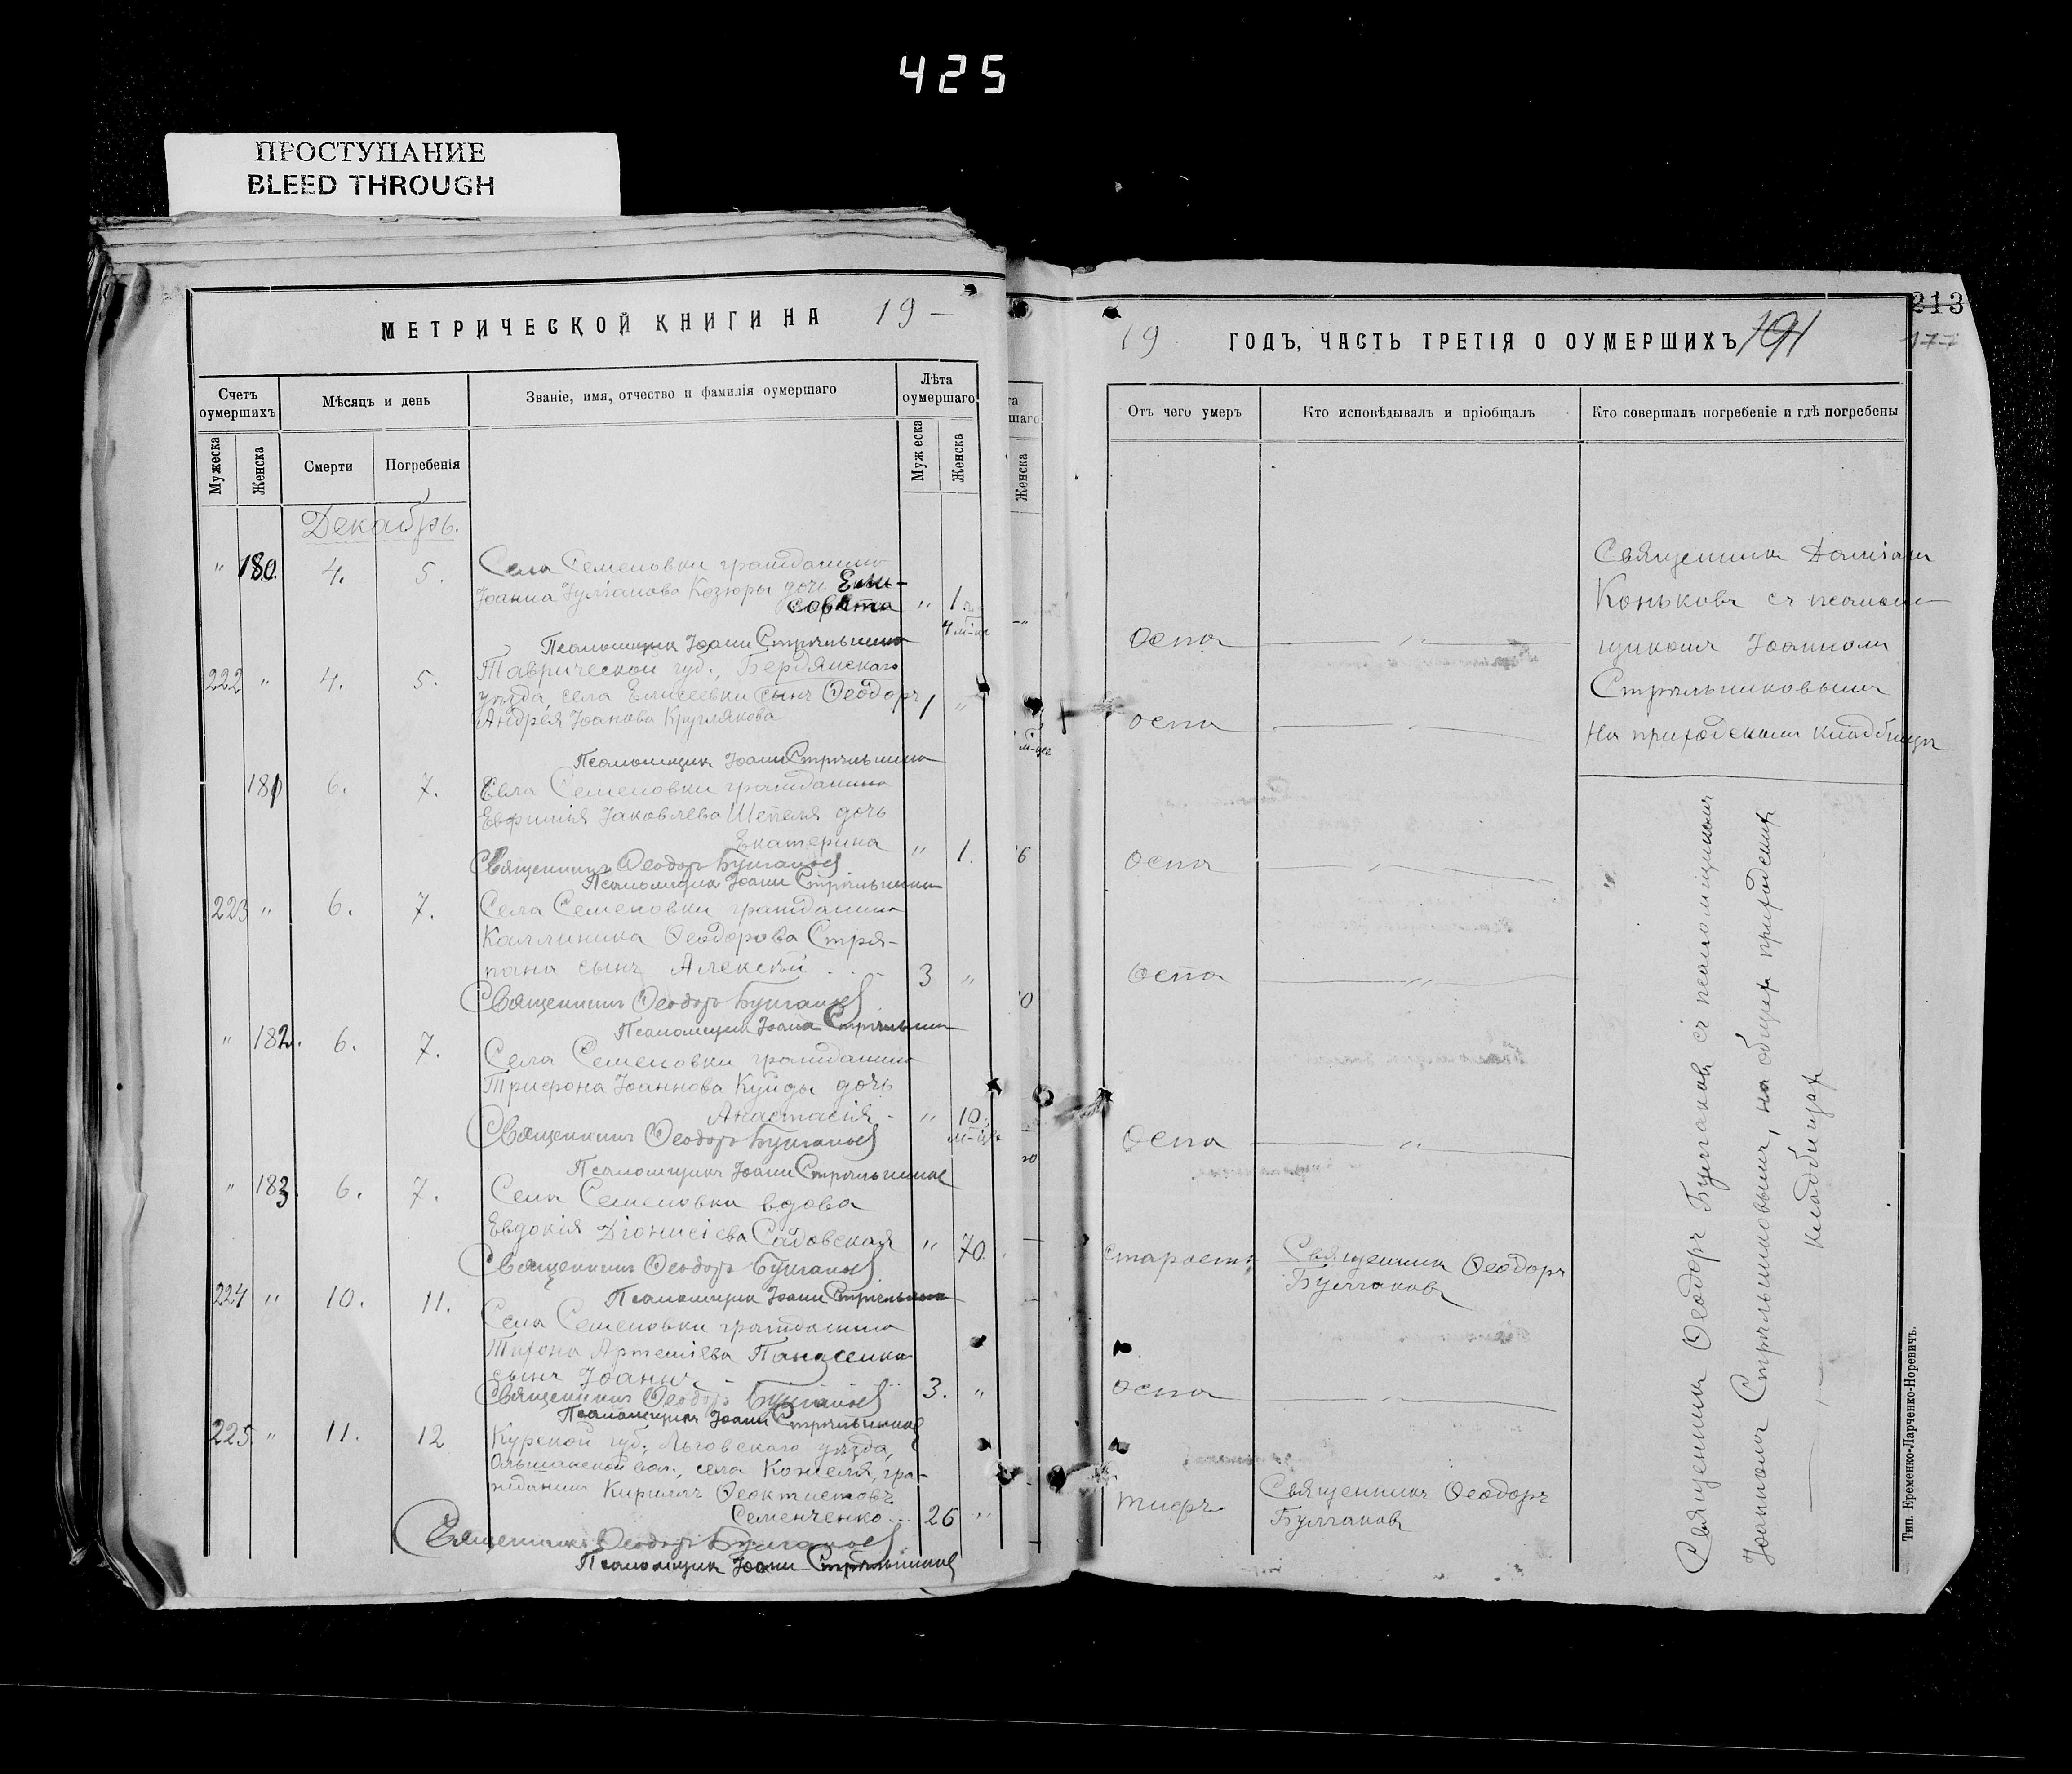 425
ПРОСТУПАНИЕ
BLEED THROUGH
МЕТРИЧЕСКОЙ КНИГИ НА 19 —
Счетъ оумершихъ
Мѣсяцъ и день
Званіе, имя, отчество и фамилія оумершаго
Лѣта оумершаго
Мужеска
Женска
Смерти
Погребенія
Мужеска
Женска
Декабрь.
" 180. 4. 5. Села Семеновки гражданина
Іоанна Іуліанова Козюры дочь Ели-
савета " 1
4 м-ца
Псаломщикъ Іоаннъ Стрѣльниковъ
222 " 4. 5. Таврической губ., Бердянскаго
уѣзда, села Елисеевки сынъ Ѳеодоръ
Андрея Іоанова Круглякова 1 "
Псаломщикъ Іоаннъ Стрѣльниковъ
181 6. 7. Села Семеновки гражданина
Евфимія Іаковлева Шепеля дочь
Екатерина " 1.
Священникъ Ѳеодоръ Булгаковъ
Псаломщикъ Іоаннъ Стрѣльниковъ
223 " 6. 7. Села Семеновки гражданина
Каллиника Ѳеодорова Стря-
пана сынъ Алексѣй 3 "
Священникъ Ѳеодоръ Булгаковъ
Псаломщикъ Іоаннъ Стрѣльниковъ
" 182. 6. 7. Села Семеновки гражданина
Трифона Іоаннова Куйды дочь
Анастасія - " 10.
м-цев
Священникъ Ѳеодоръ Булгаковъ
Псаломщикъ Іоаннъ Стрѣльниковъ
" 183. 6. 7. Села Семеновки вдова
Евдокія Діонисіева Садовская " 70.
Священникъ Ѳеодоръ Булгаковъ
Псаломщикъ Іоаннъ Стрѣльниковъ
224 " 10. 11. Села Семеновки гражданина
Тихона Артеміева Панасенка
сынъ Іоаннъ 3. "
Священникъ Ѳеодоръ Булгаковъ
Псаломщикъ Іоаннъ Стрѣльниковъ
225 " 11. 12 Курской губ. Льговскаго уѣзда,
Ольшанской вол., села гра-
жданинъ Кириллъ Ѳеоктистовъ
Семенченко 26 "
Священникъ Ѳеодоръ Булгаковъ
Псаломщикъ Іоаннъ Стрѣльниковъ
Женска
19 ГОДЪ, ЧАСТЬ ТРЕТІЯ О ОУМЕРШИХЪ 191
213
177
Отъ чего умеръ
Кто исповѣдывалъ и пріобщалъ
Кто совершалъ погребеніе и гдѣ погребены
Оспа — " —
оспа —
Оспа — " —
Оспа — " —
Оспа — " —
старости Священникъ Ѳеодоръ
Булгаковъ
оспа — " —
тифъ Священникъ Ѳеодоръ
Булгаковъ
Священникъ Даміанъ
Коньковъ съ псалом-
щикомъ Іоанномъ
Стрѣльниковымъ
На приходскомъ кладбищѣ
Священникъ Ѳеодоръ Булгаковъ съ псаломщикомъ
Іоанномъ Стрѣльниковымъ, на общихъ приходскихъ
кладбищахъ
Тип. Еременко-Ларченко-Норевичъ.